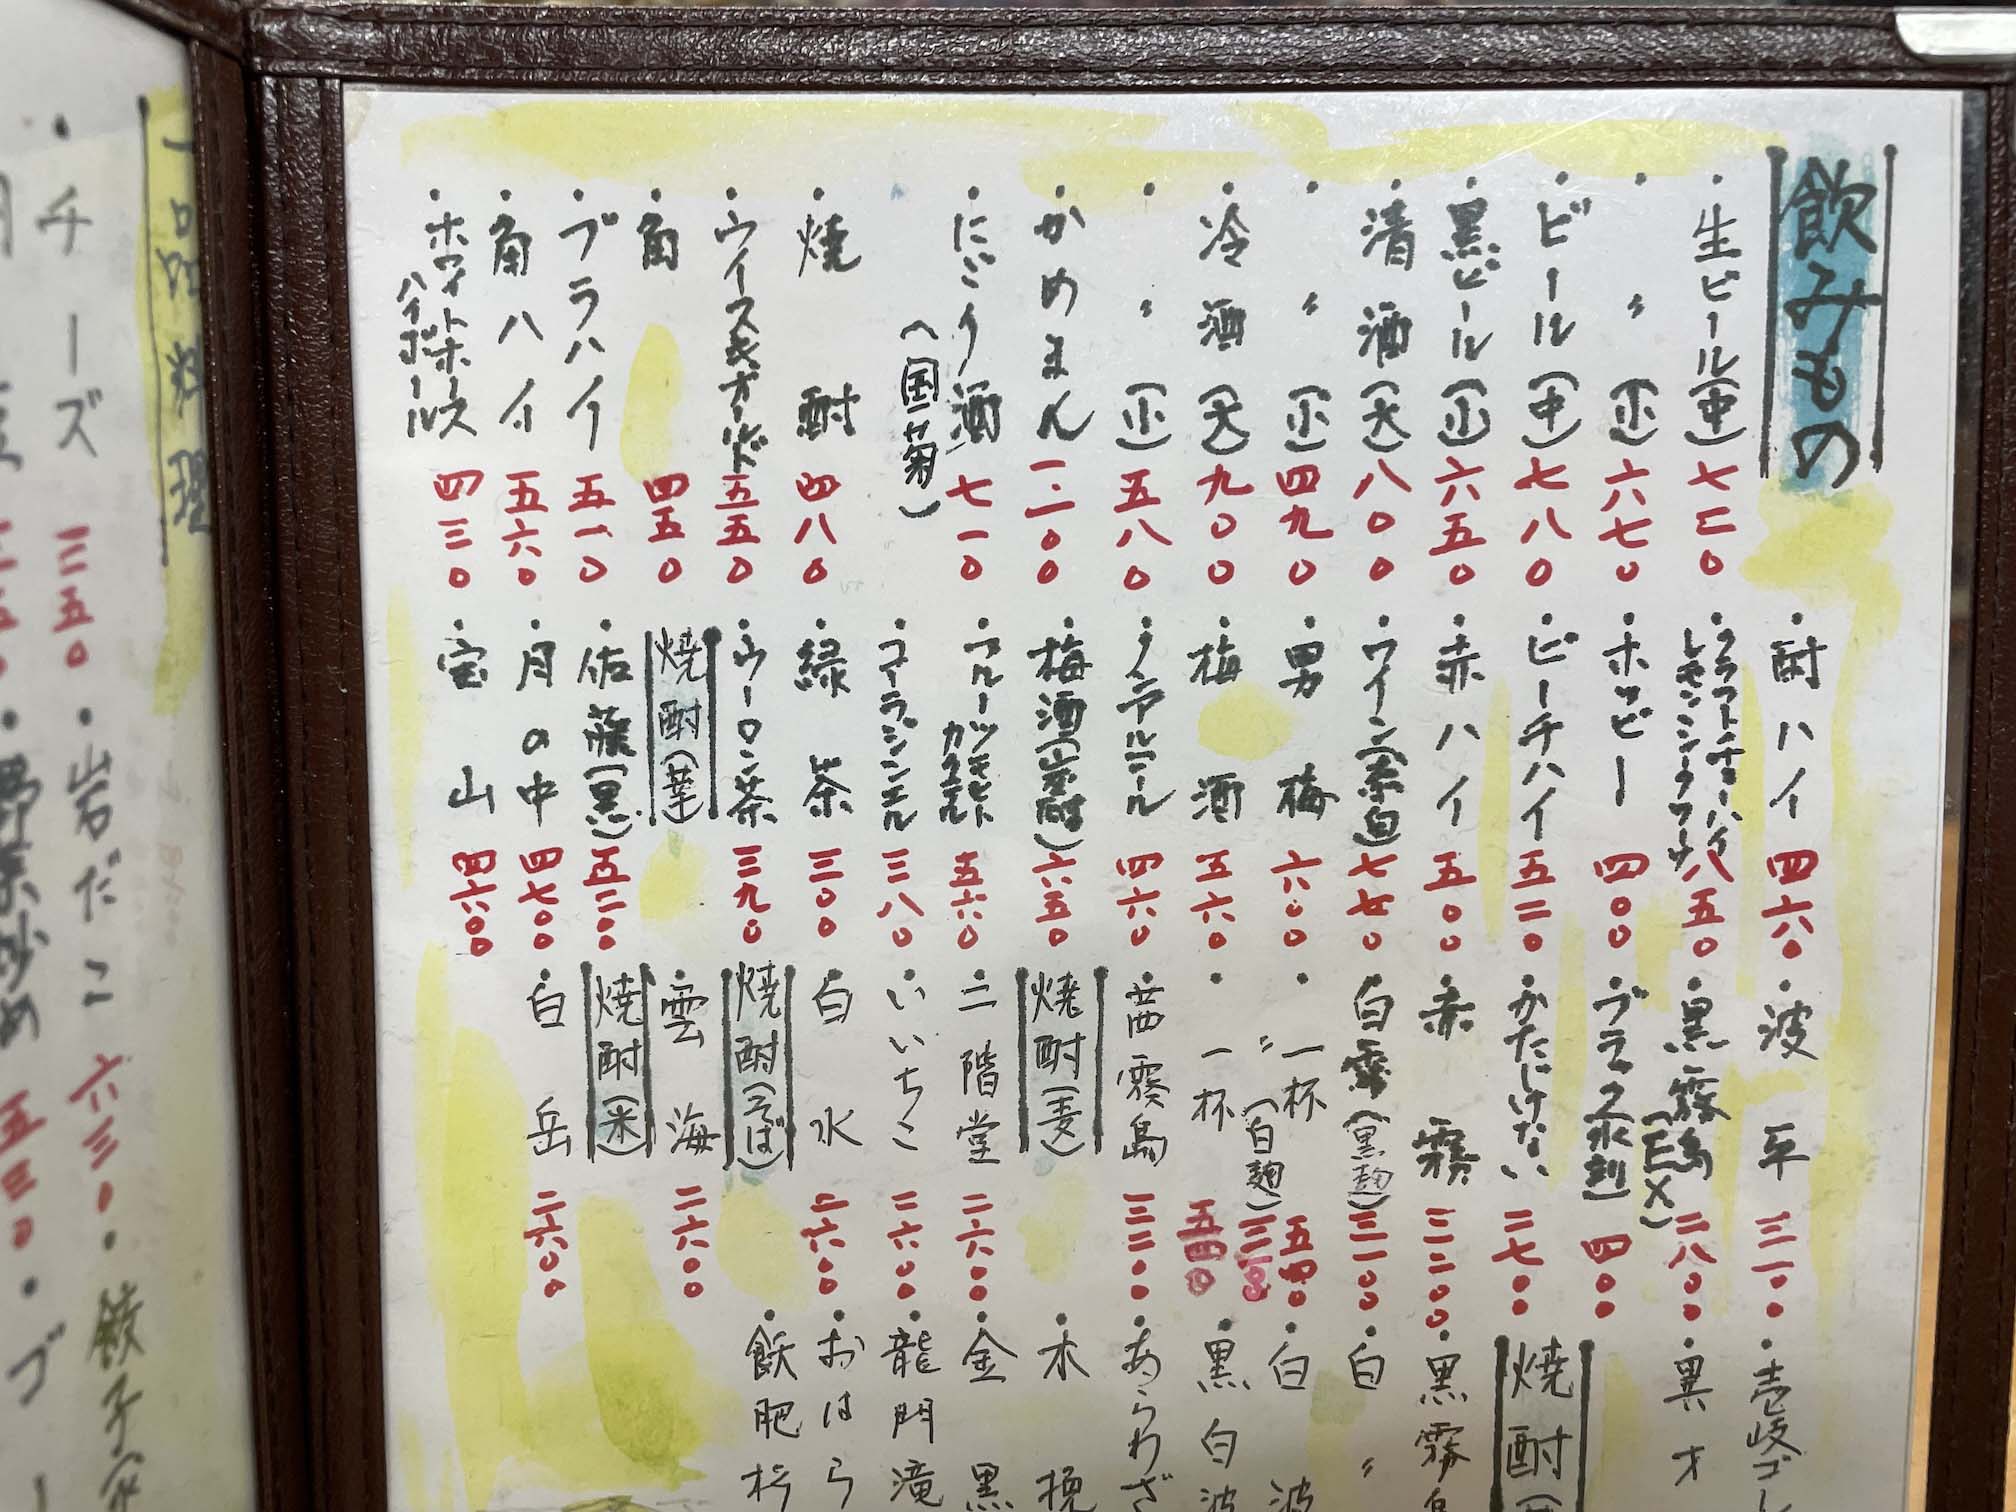 飲みもの
・生ビール(中) 七二〇
・〃(小) 六七〇
・ビール(中) 七八〇
・黒ビール(小) 六五〇
・清酒(大) 八〇〇
・〃(小) 四九〇
・冷酒(大) 九〇〇
・〃(小) 五八〇
・かめまん 一、一〇〇
・にごり酒 七一〇
(国菊)
・焼酎 四八〇
・ウイスキーオールド 五五〇
・角 四五〇
・ブラハイ 五一〇
・角ハイ 五六〇
・ホワイトホース
ハイボール 四三〇
・酎ハイ 四六〇
・クラフトチューハイ
レモンシークワーサー 八五〇
・ホッピー 四〇〇
・ピーチハイ 五二〇
・赤ハイ 五〇〇
・ワイン(赤白) 七七〇
・男梅 六〇〇
・梅酒 五六〇
・ノンアルコール 四六〇
・梅酒(山崎) 六五〇
・フルーツモルト
カクテル 五六〇
・コイラジンエル 三八〇
・緑茶 三〇〇
・ウーロン茶 三九〇
焼酎(芋)
・佐藤(黒) 五二〇〇
・月の中 四七〇〇
・宝山 四六〇〇
・波平 三一〇〇
・黒霧島(EX) 二八〇〇
・ブラック(水割) 四〇〇
・かたじけない 二七〇〇
・赤霧 三二〇〇
・白霧(黒麹) 三一〇〇
・一杯 五四〇
〃(白麹)
・一杯 五四〇
・茜霧島 三二〇〇
焼酎(麦)
・二階堂 二六〇〇
・いいちこ 二六〇〇
・白水 二六〇〇
焼酎(そば)
・雲海 二六〇〇
焼酎(米)
・白岳 二六〇〇
・壱岐ゴ
焼酎
・黒霧島
・白〃
・白波
・黒白波
・あらわざ
・木挽
・金黒
・龍門滝
・おはら
・飫肥杉
一品料理
・チーズ 三五〇
・岩だこ 六三〇
・野菜炒め 五三〇
・ゴ